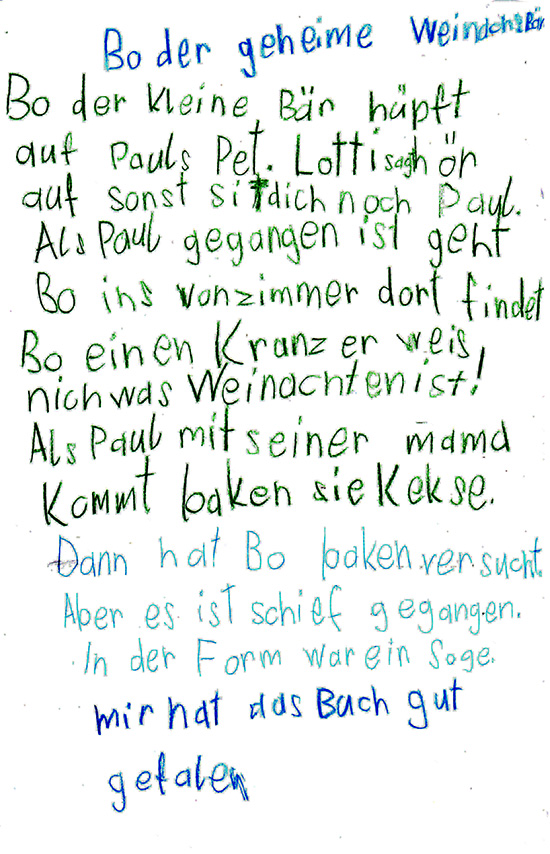 Bo der geheime Weindchts Bär
Bo der kleine Bär hüpft
auf Pauls Pet. Lotti sagh ör
auf sonst sitdich noch Paul.
Als Paul gegangen ist geht
Bo ins vonzimmer dort findet
Bo einen Kranz er weis,
nich was Weinachten ist!
Als Paul mit seiner mama
kommt baken sie Kekse.
Dann hat Bo baken versucht.
Aber es ist schief gegangen.
In der Form war ein Soge.
mir hat das Buch gut
gefalen